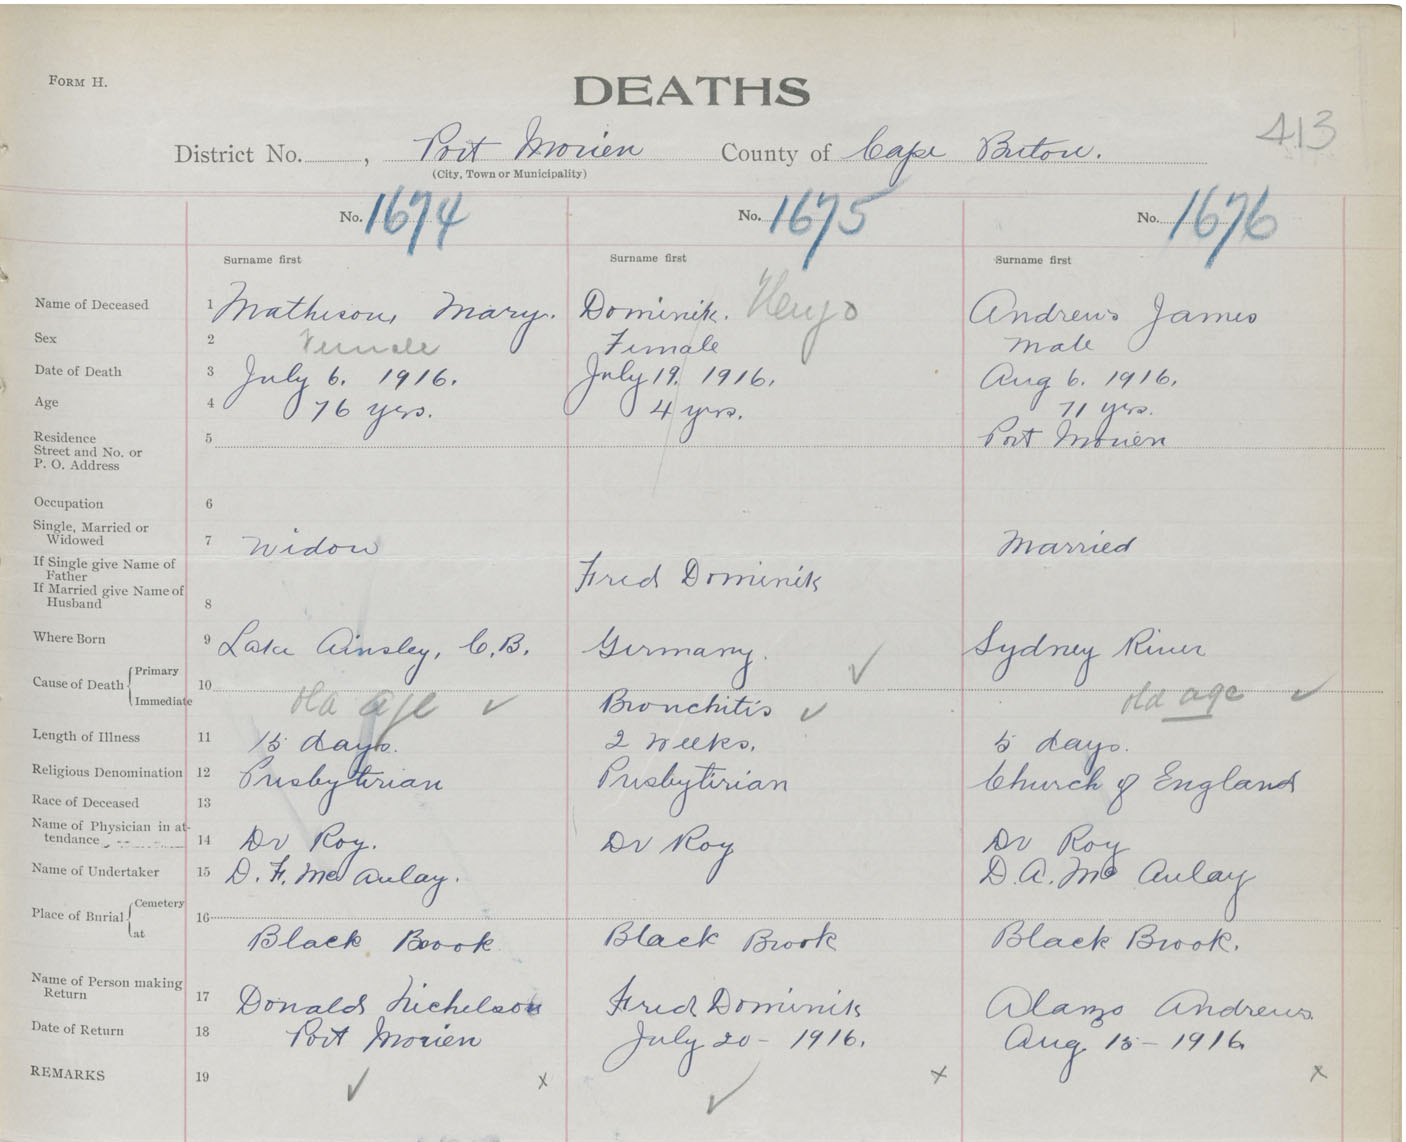 FORM H.
DEATHS
413
District No. , Port Morien County of Cape Breton.
(City, Town or Municipality)
No. 1674 No. 1675 No. 1676
Surname first Surname first Surname first
Name of Deceased 1 Matheson, Mary. Dominik. Andrews James
Sex 2 Female Female Male
Date of Death 3 July 6. 1916. July 19. 1916. Aug 6. 1916.
Age 4 76 yrs. 4 yrs. 71 yrs.
Residence 5 Port Morien
Street and No. or
P. O. Address
Occupation 6
Single, Married or
Widowed 7 Widow Married
If Single give Name of
Father Fred Dominik
If Married give Name of
Husband 8
Where Born 9 Lake Ainsley, C.B. Germany. Sydney River
Primary
Cause of Death 10
Immediate old age Bronchitis old age
Length of Illness 11 15 days. 2 weeks. 5 days.
Religious Denomination 12 Presbyterian Presbyterian Church of England
Race of Deceased 13
Name of Physician in at-
tendance 14 Dr Roy. Dr Roy Dr Roy
Name of Undertaker 15 D. F. McAulay. D. A. McAulay
Cemetery
Place of Burial 16
at Black Brook Black Brook Black Brook.
Name of Person making
Return 17 Donald Nichelson Fred Dominik Alamzo Andrews.
Date of Return 18 Port Morien July 20 - 1916. Aug 15 - 1916.
REMARKS 19 x x x